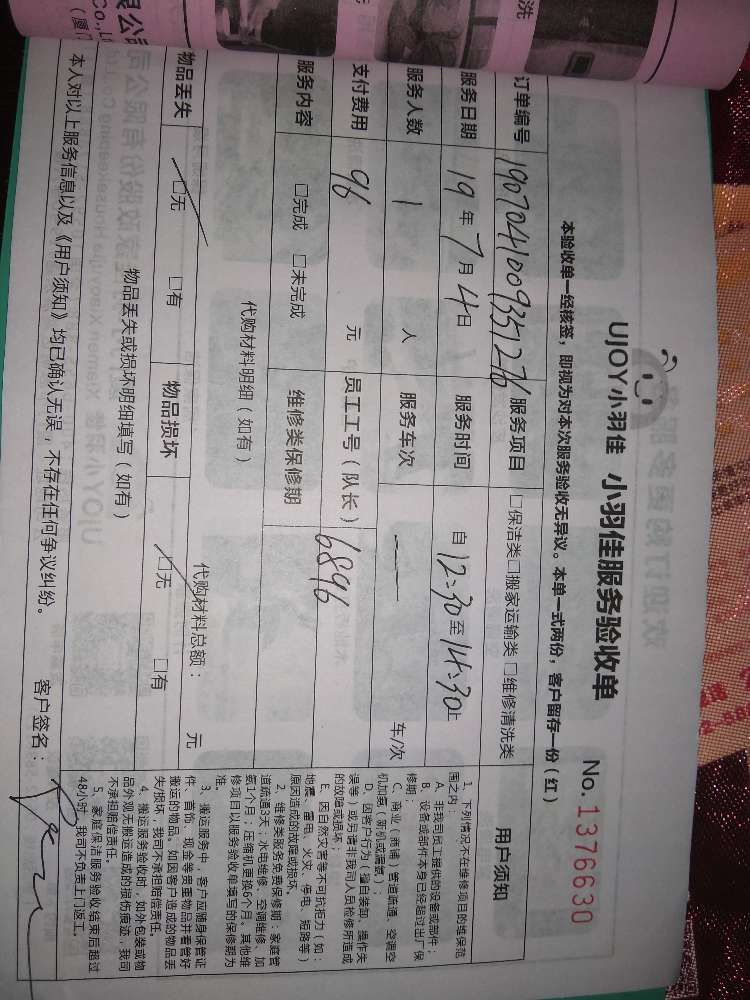 UJOY小羽佳 小羽佳服务验收单 No.1376630
本验收单一经核签，即视为对本次服务验收无异议。本单一式两份，客户留存一份（红）
订单编号 1907041009351276 服务项目 □保洁类□搬家运输类□维修清洗类
服务日期 19年7月4日 服务时间 自12:30至14:30止
服务人数 1 人 服务车次 — 车/次
支付费用 96 元 员工工号（队长） 6896
服务内容 □完成 □未完成 维修类保修期
代购材料明细（如有） 代购材料总额： 元
物品丢失 □无 □有 物品损坏 □无 □有
物品丢失或损坏明细填写（如有）
本人对以上服务信息以及《用户须知》均已确认无误，不存在任何争议纠纷。 客户签名：
用户须知
1、下列情况不在维修项目的维保范
围之内：
A、非我司员工提供的设备或部件；
B、设备或部件本身已经超过出厂保
修期；
C、商业（商铺）管道疏通、空调空
机加氨（新机或漏氨）；
D、因客户行为（擅自装卸、操作失
误等）或另请非我司人员检修所造成
的故障或损坏；
E、因自然灾害等不可抗拒力（如：
地震、雷电、火灾、停电、短路等）
原因造成的故障或损坏。
2、维修类服务免费保修期：家庭管
道疏通3天；水电维修、空调维修、加
氨1个月；压缩机更换6个月。其他维
修项目以服务验收单填写的保修期为
准。
3、搬运服务中，客户应随身保管证
件、首饰、现金等贵重物品并看管好
搬运的物品。如因客户造成的物品丢
失/损坏，我司不承担赔偿责任。
4、搬运服务验收时，如外包装或物
品外观无搬运造成的损伤痕迹，我司
不承担赔偿责任。
5、家庭保洁服务验收结束后超过
48小时，我司不负责上门返工。